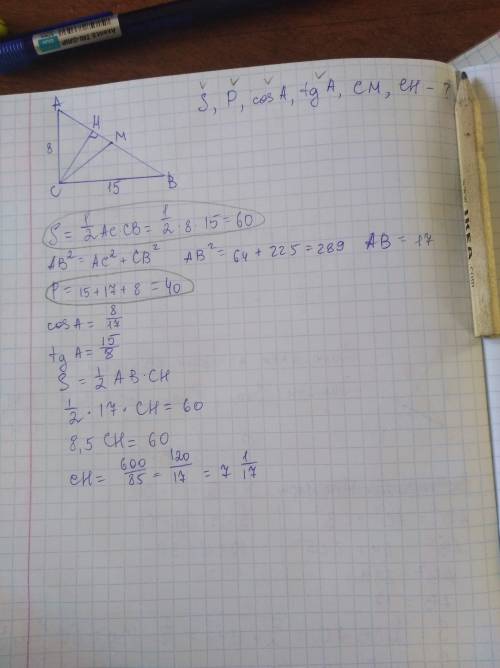 S, P, cos A, tg A, CM, CH - ?
A
H
M
8
C
15
B
S = 1/2 AC CB = 1/2 · 8 · 15 = 60
AB² = AC² + CB² AB² = 64 + 225 = 289 AB = 17
P = 15 + 17 + 8 = 40
cos A = 8/17
tg A = 15/8
S = 1/2 AB · CH
1/2 · 17 · CH = 60
8,5 CH = 60
CH = 600/85 = 120/17 = 7 1/17
IKEA